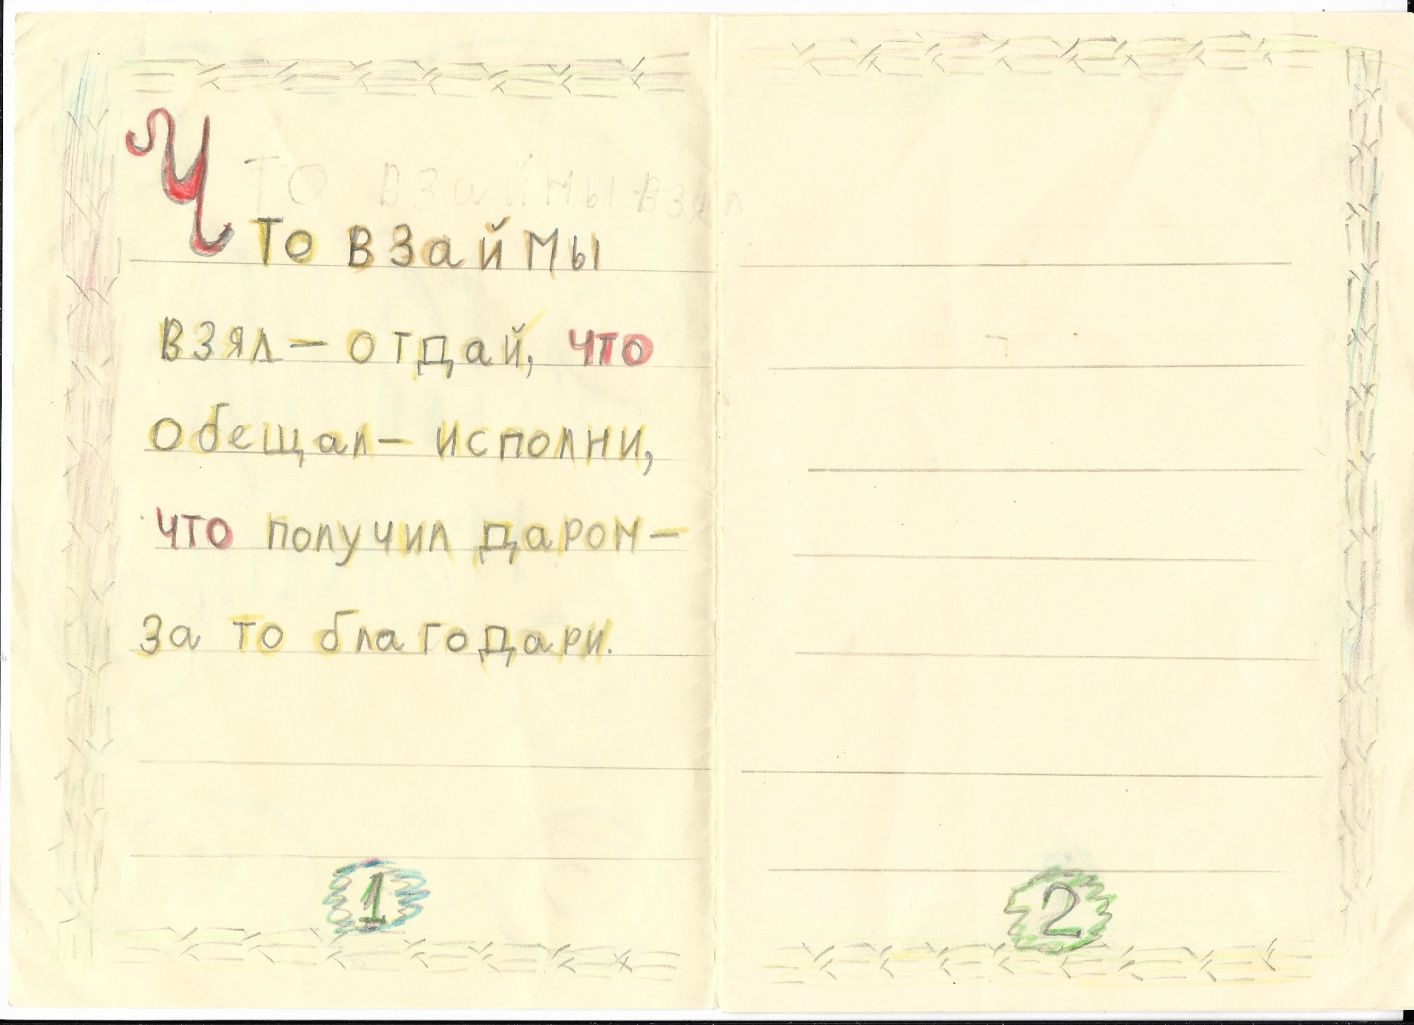 то взаймы взял
Что взаймы
взял – отдай, что
обещал – исполни,
что получил даром –
за то благодари.
1
2